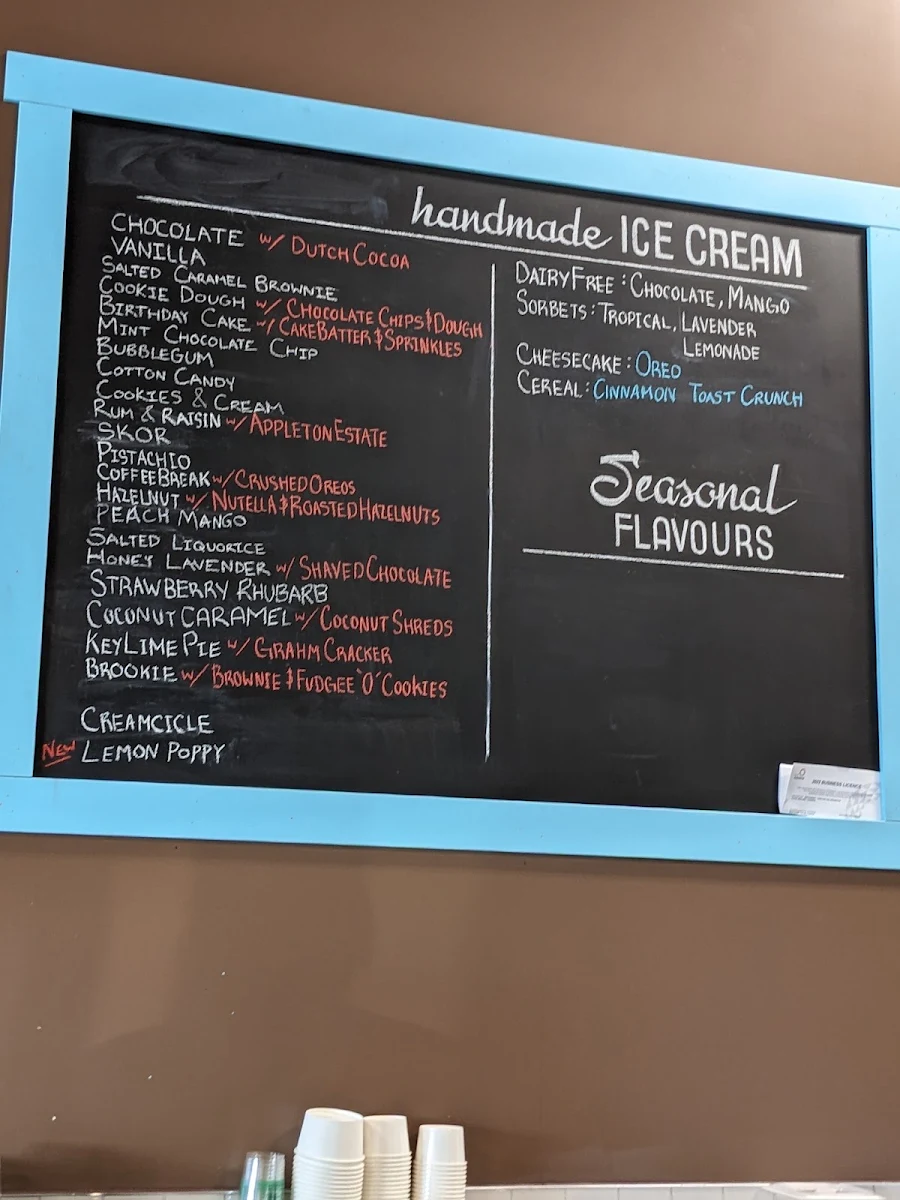 handmade ICE CREAM
CHOCOLATE w/ DUTCH COCOA
VANILLA
SALTED CARAMEL BROWNIE
COOKIE DOUGH w/ CHOCOLATE CHIPS & DOUGH
BIRTHDAY CAKE w/ CAKE BATTER & SPRINKLES
MINT CHOCOLATE CHIP
BUBBLEGUM
COTTON CANDY
COOKIES & CREAM
RUM & RAISIN w/ APPLETON ESTATE
SKOR
PISTACHIO
COFFEE BREAK w/ CRUSHED OREOS
HAZELNUT w/ NUTELLA & ROASTED HAZELNUTS
PEACH MANGO
SALTED LIQUORICE
HONEY LAVENDER w/ SHAVED CHOCOLATE
STRAWBERRY RHUBARB
COCONUT CARAMEL w/ COCONUT SHREDS
KEY LIME PIE w/ GRAHM CRACKER
BROOKIE w/ BROWNIE & FUDGEE "O" COOKIES
CREAMCICLE
NEW LEMON POPPY
DAIRY FREE : CHOCOLATE, MANGO
SORBETS : TROPICAL, LAVENDER
LEMONADE
CHEESECAKE : OREO
CEREAL : CINNAMON TOAST CRUNCH
Seasonal
FLAVOURS
BUSINESS LICENCE